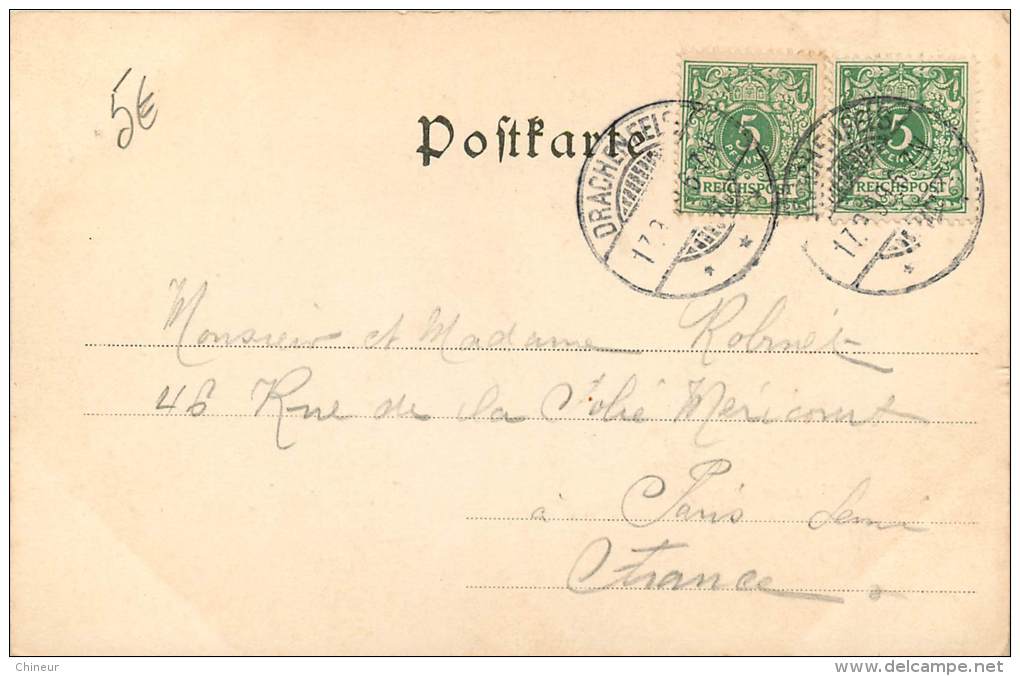 5€
Postkarte
5
PFENNIG
REICHSPOST
5
PFENNIG
REICHSPOST
DRACHENFELS
17.9
DRACHENFELS
17.9
Monsieur et Madame Robinet
46 Rue de la Folie Méricourt
à Paris
France
Chineur
delcampe.net